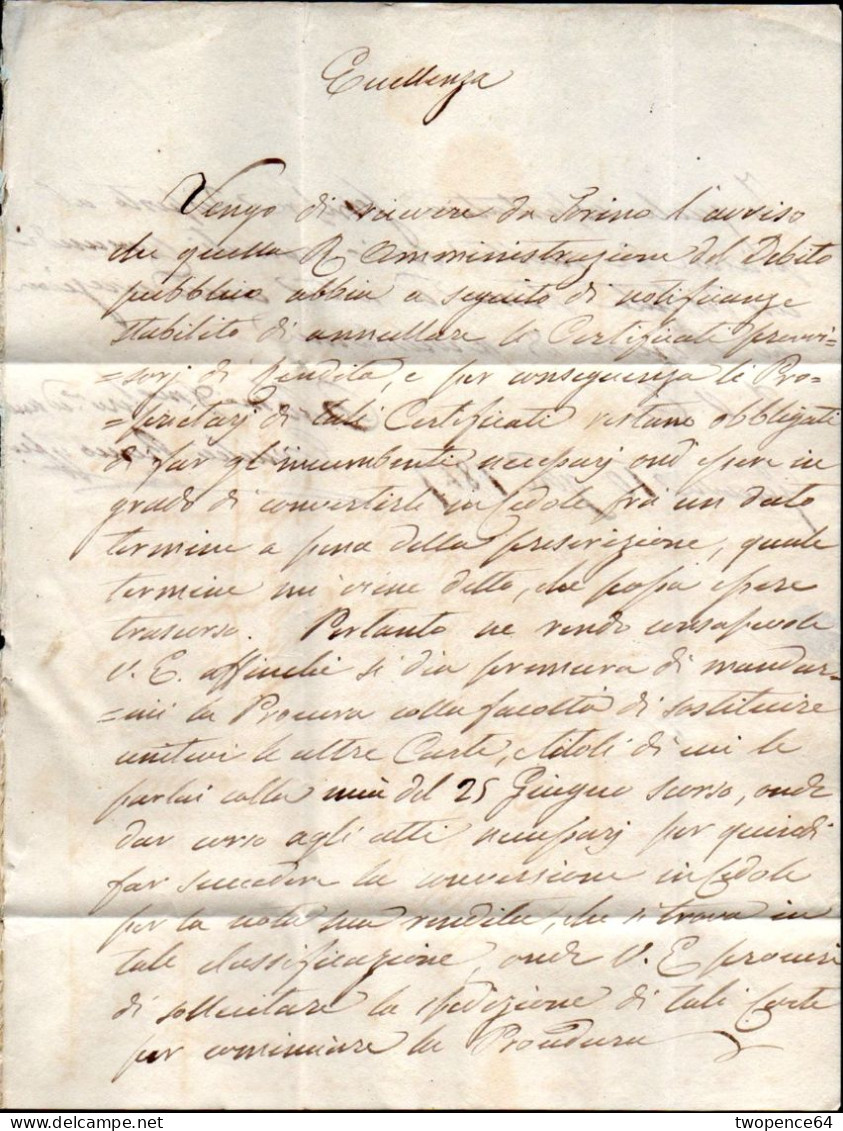 Eccellenza
Vengo di ricevere da Torino l'avviso
che quella R. Amministrazione del Debito
pubblico abbia a seguito di notificanze
stabilito di annullare le Certificati provvi=
=sorj di Rendita, e per conseguenza li Pro=
=prietarj di tali Certificati restano obbligati
di far gl'incumbenti necessarj ond'essere in
grado di convertirli in Cedole frà un dato
termine a pena della prescrizione, quale
termine mi viene detto, che possa essere
trascorso. Pertanto ne rendo consapevole
V. E. affinché si dia premura di mandar=
=mi la Procura colla facoltà di sostituire
unitivi le altre Carte, e titoli di cui le
parlai colla mia del 25 Giugno scorso, onde
dar corso agli atti necessarj per quindi
far succedere la conversione in Cedole
per la nota sua rendita, che si trova in
tale classificazione, onde V. E. procuri
di sollecitare la spedizione di tali Carte
per cominciare la Procedura
www.delcampe.net
twopence64